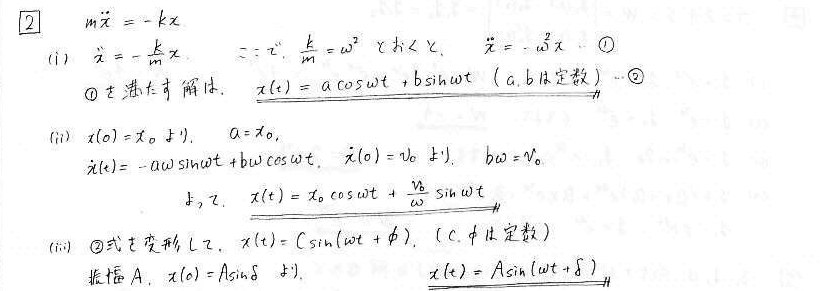 2 mẍ = -kx
(i) ẍ = -k/m x. ここで、k/m = ω² とおくと、 ẍ = -ω²x … ①
①を満たす解は、 x(t) = a cos ωt + b sin ωt (a, bは定数) … ②
(ii) x(0) = x₀ より、 a = x₀,
ẋ(t) = -aω sin ωt + bω cos ωt, ẋ(0) = v₀ より、 bω = v₀
よって、 x(t) = x₀ cos ωt + v₀/ω sin ωt
(iii) ②式を変形して、x(t) = C sin(ωt + φ), (C, φは定数)
振幅 A, x(0) = A sin δ より、 x(t) = A sin(ωt + δ)